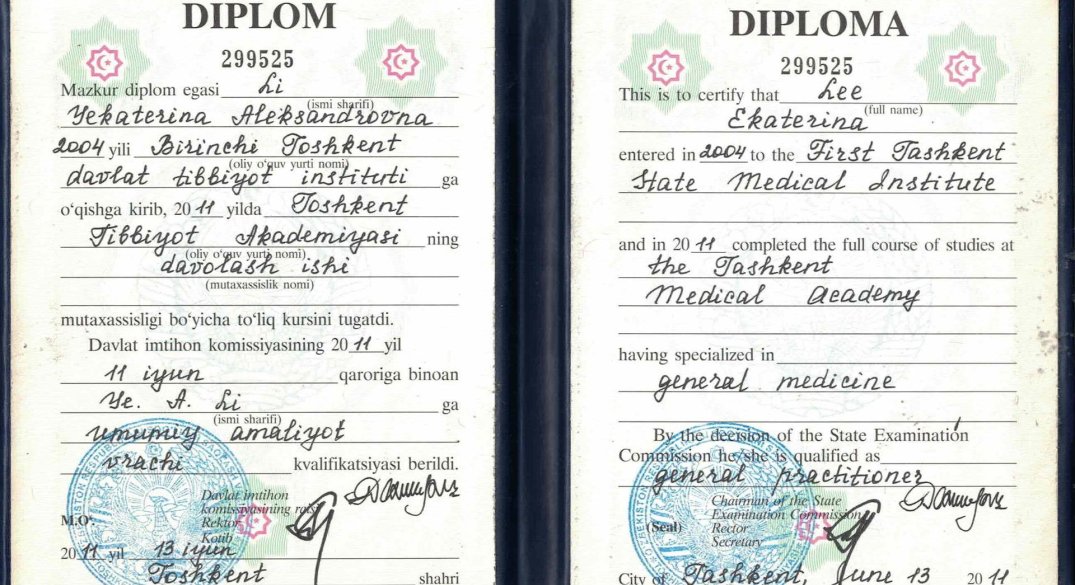 DIPLOM
299525
Mazkur diplom egasi Li
(ismi sharifi)
Yekaterina Aleksandrovna
2004 yili Birinchi Toshkent
(oliy o‘quv yurti nomi)
davlat tibbiyot instituti ga
o‘qishga kirib, 2011 yilda Toshkent
Tibbiyot Akademiyasi ning
(oliy o‘quv yurti nomi)
davolash ishi
(mutaxassislik nomi)
mutaxassisligi bo‘yicha to‘liq kursini tugatdi.
Davlat imtihon komissiyasining 2011 yil
11 iyun qaroriga binoan
Ye. A. Li ga
(ismi sharifi)
umumiy amaliyot
vrachi kvalifikatsiyasi berildi.
Davlat imtihon
komissiyasining raisi
M.O‘. Rektor
Kotib
2011 yil 13 iyun
Toshkent shahri
DIPLOMA
299525
This is to certify that Lee
(full name)
Ekaterina
entered in 2004 to the First Tashkent
State Medical Institute
and in 2011 completed the full course of studies at
the Tashkent
Medical Academy
having specialized in
general medicine
By the decision of the State Examination
Commission he/she is qualified as
general practitioner
Chairman of the State
Examination Commission
(Seal) Rector
Secretary
City of Tashkent, June 13 2011